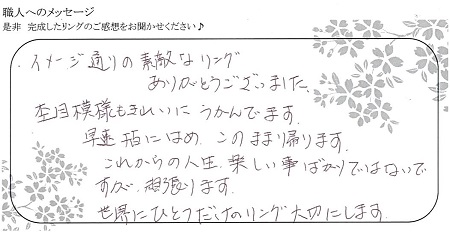 職人へのメッセージ
是非 完成したリングのご感想をお聞かせください♪
・イメージ通りの素敵なリング
ありがとうございました。
杢目模様もきれいに うかんでます。
早速 指にはめ、このまま帰ります。
これからの人生、楽しい事ばかりではないで
すが、頑張ります。
世界にひとつだけのリング大切にします。